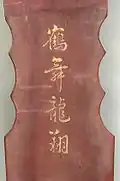 鶴舞龍翔